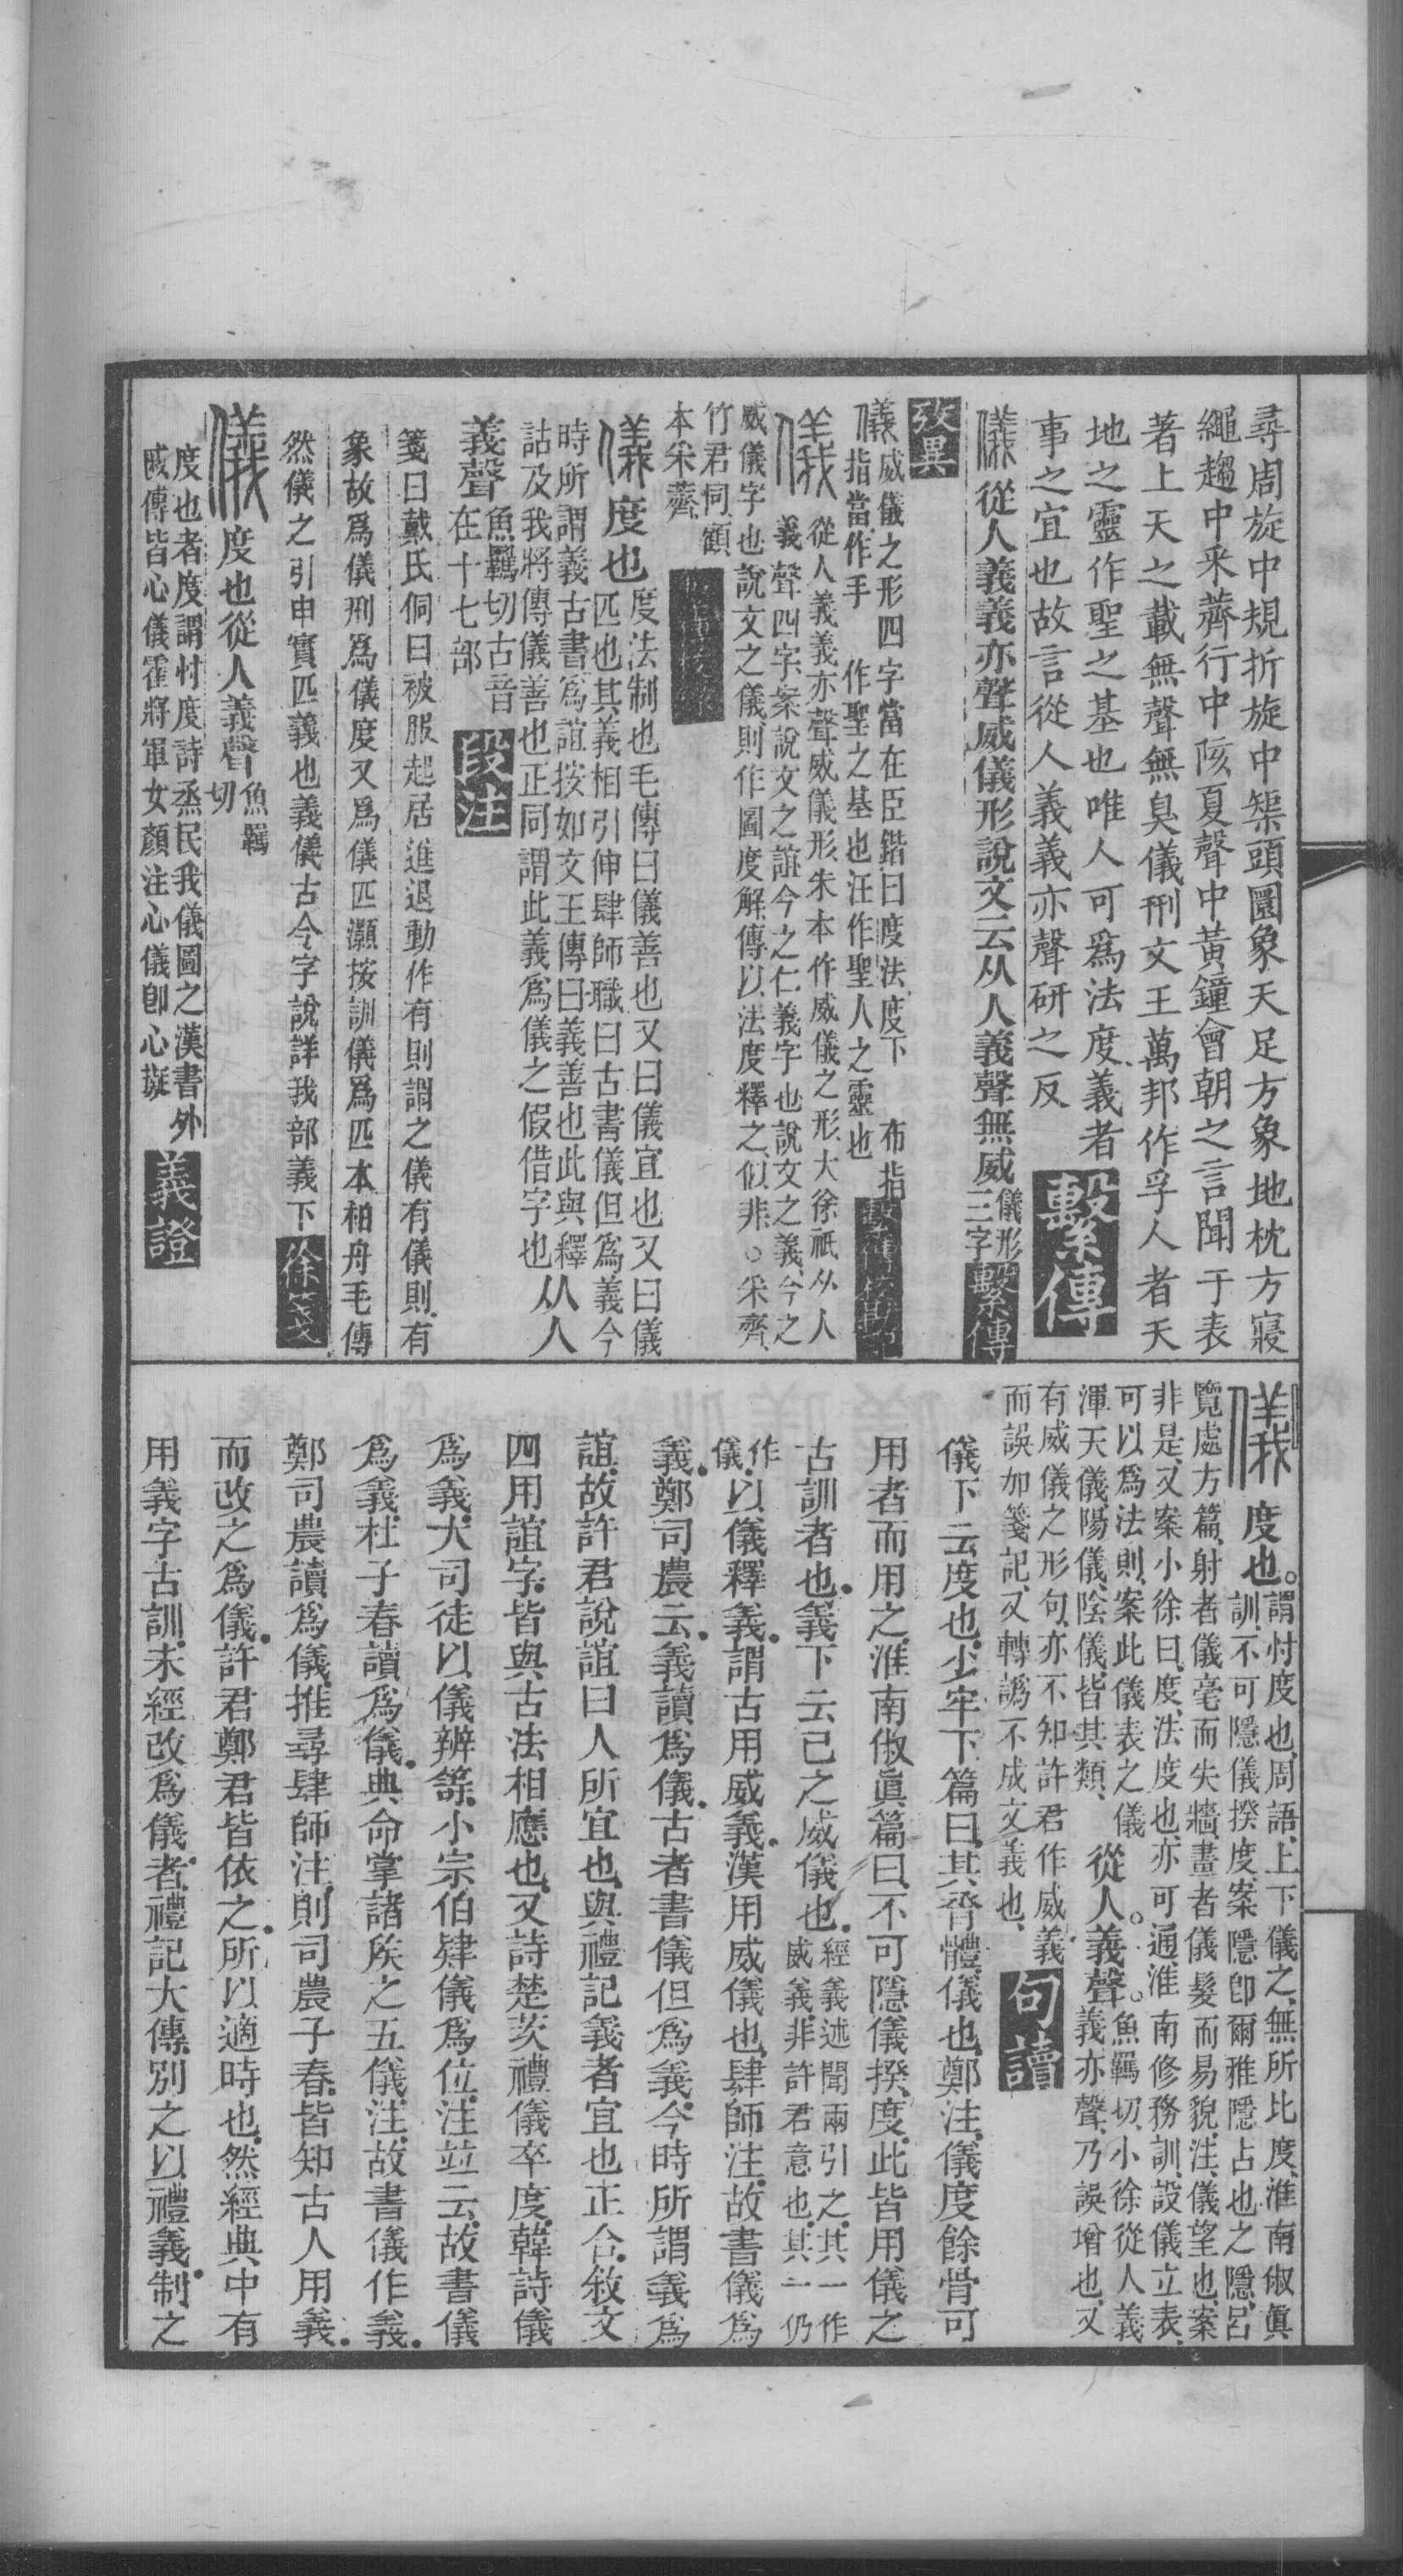 尋周旋中規折旋中榘頭圜象天足方象地枕方寢
繩趨中采薺行中陔夏聲中黃鐘會朝之言聞于表
著上天之載無聲無臭儀刑文王萬邦作孚人者天
地之靈作聖之基也唯人可爲法度義者
事之宜也故言從人義義亦聲研之反
繫傳
儀從人義義亦聲威儀形說文云从人義聲無威
儀形
三字
繫傳
攷異
儀威儀之形四字當在臣鍇曰度法度下 布指
指當作手 作聖之基也汪作聖人之靈也
繫傳校勘記
儀從人義義亦聲威儀形朱本作威儀之形大徐衹从人
義聲四字案說文之誼今之仁義字也說文之義今之
威儀字也說文之儀則作圖度解傳以法度釋之似非○采齊
竹君同顧
本采薺
儀度也
度法制也毛傳曰儀善也又曰儀宜也又曰儀
匹也其義相引伸肆師職曰古書儀但爲義今
時所謂義古書爲誼按如文王傳曰義善也此與釋
詁及我將傳儀善也正同謂此義爲儀之假借字也
从人
義聲
魚羈切古音
在十七部
段注
箋曰戴氏侗曰被服起居進退動作有則謂之儀有儀則有
象故爲儀刑爲儀度又爲儀匹灝按訓儀爲匹本柏舟毛傳
然儀之引申實匹義也義儀古今字說詳我部義下
徐箋
儀度也從人義聲
魚羈
切
度也者度謂忖度詩烝民我儀圖之漢書外
戚傳皆心儀霍將軍女顏注心儀卽心擬
義證
儀度也。
謂忖度也周語上下儀之無所比度淮南俶眞
訓不可隱儀揆度案隱卽爾雅隱占也之隱呂
覽處方篇射者儀毫而失牆畫者儀髮而易貌注儀望也案
非是又案小徐曰度法度也亦可通淮南修務訓設儀立表
可以爲法則案此儀表之儀
渾天儀陽儀陰儀皆其類
從人。義聲。
魚羈切小徐從人義
義亦聲乃誤增也又
有威儀之形句亦不知許君作威義
而誤加箋記又轉譌不成文義也
句讀
儀下云度也少牢下篇曰其脀體儀也鄭注儀度餘骨可
用者而用之淮南俶眞篇曰不可隱儀揆度此皆用儀之
古訓者也義下云己之威儀也
經義述聞兩引之其一作
威義非許君意也其一仍
作
儀
以儀釋義謂古用威義漢用威儀也肆師注故書儀爲
義鄭司農云義讀爲儀古者書儀但爲義今時所謂義爲
誼故許君說誼曰人所宜也與禮記義者宜也正合敘文
四用誼字皆與古法相應也又詩楚茨禮儀卒度韓詩儀
爲義大司徒以儀辨等小宗伯肄儀爲位注竝云故書儀
爲義杜子春讀爲儀典命掌諸侯之五儀注故書儀作義
鄭司農讀爲儀推尋肆師注則司農子春皆知古人用義
而改之爲儀許君鄭君皆依之所以適時也然經典中有
用義字古訓未經改爲儀者禮記大傳別之以禮義制之